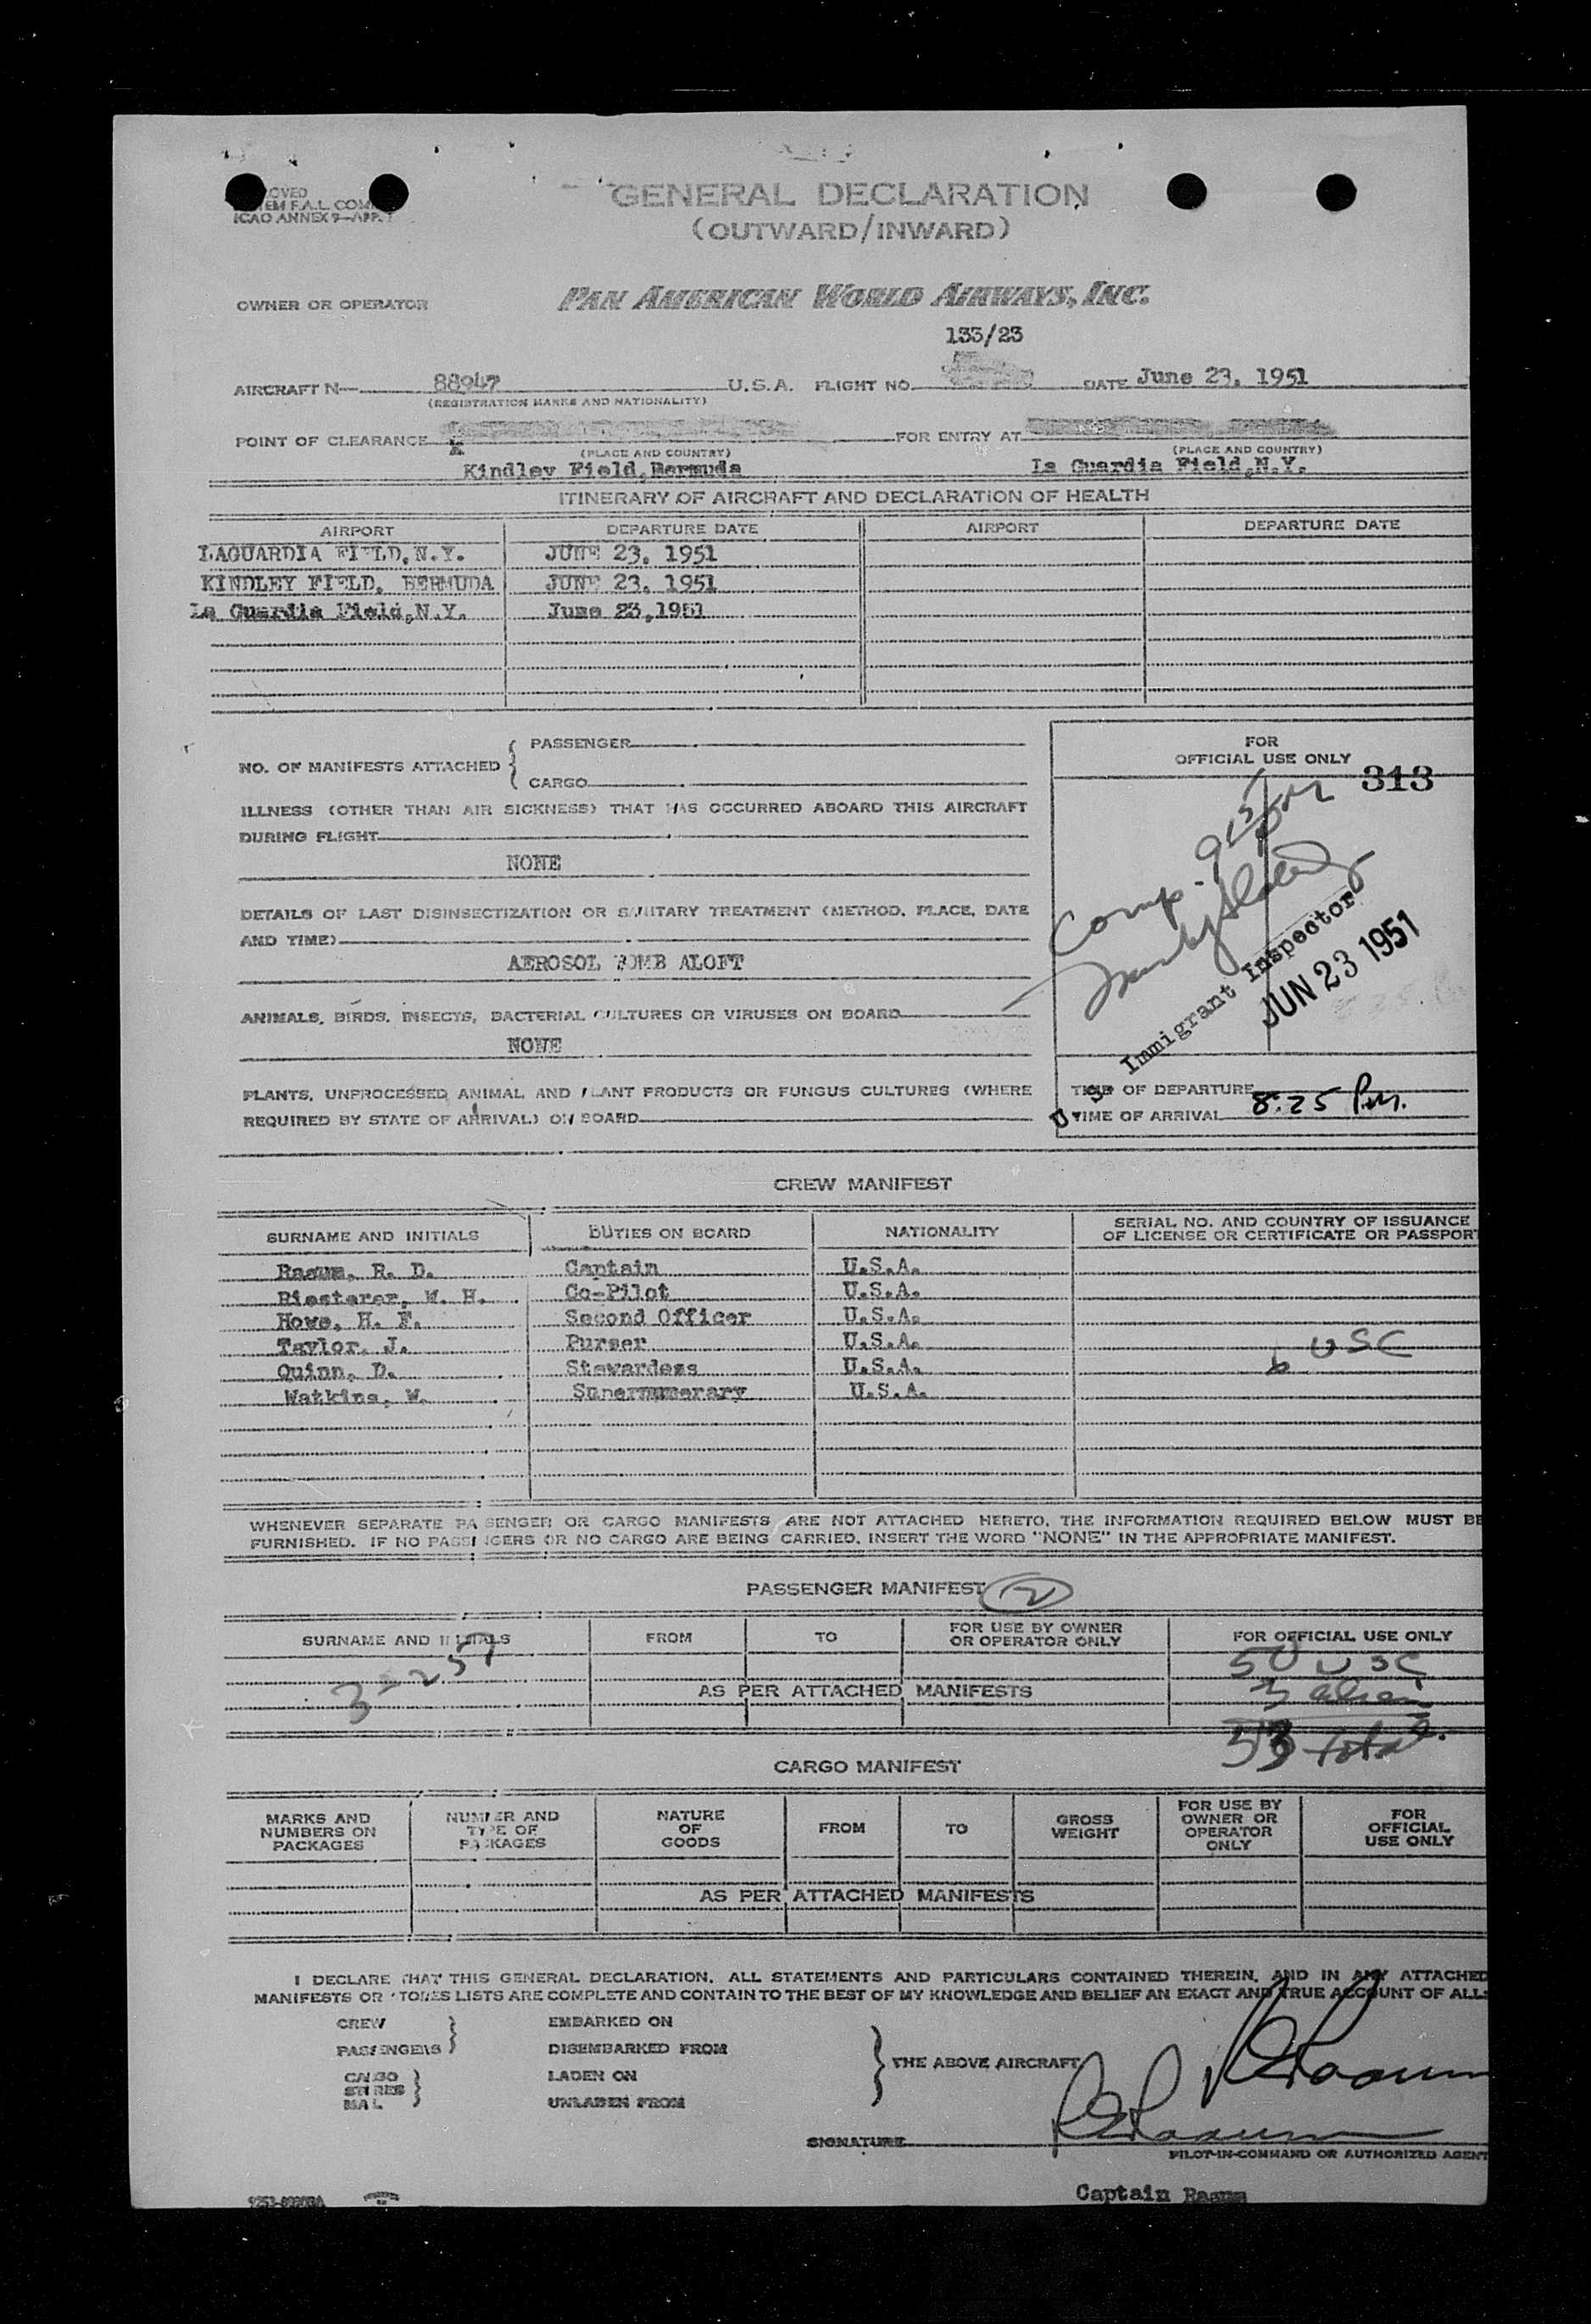 GENERAL DECLARATION
(OUTWARD/INWARD)
ICAO ANNEX 9—APP. 1
OWNER OR OPERATOR PAN AMERICAN WORLD AIRWAYS, INC.
133/23
AIRCRAFT N— 88947 U.S.A. FLIGHT NO. DATE June 23, 1951
(REGISTRATION MARKS AND NATIONALITY)
POINT OF CLEARANCE FOR ENTRY AT
(PLACE AND COUNTRY) (PLACE AND COUNTRY)
Kindley Field, Bermuda La Guardia Field, N.Y.
ITINERARY OF AIRCRAFT AND DECLARATION OF HEALTH
AIRPORT DEPARTURE DATE AIRPORT DEPARTURE DATE
LAGUARDIA FIELD, N.Y. JUNE 23, 1951
KINDLEY FIELD, BERMUDA JUNE 23, 1951
La Guardia Field, N.Y. June 23, 1951
NO. OF MANIFESTS ATTACHED { PASSENGER
CARGO
ILLNESS (OTHER THAN AIR SICKNESS) THAT HAS OCCURRED ABOARD THIS AIRCRAFT
DURING FLIGHT
NONE
DETAILS OF LAST DISINSECTIZATION OR SANITARY TREATMENT (METHOD, PLACE, DATE
AND TIME)
AEROSOL BOMB ALOFT
ANIMALS, BIRDS, INSECTS, BACTERIAL CULTURES OR VIRUSES ON BOARD
NONE
PLANTS, UNPROCESSED ANIMAL AND PLANT PRODUCTS OR FUNGUS CULTURES (WHERE
REQUIRED BY STATE OF ARRIVAL) ON BOARD
FOR
OFFICIAL USE ONLY
313
Comp. 915 PM
Immigrant Inspector
JUN 23 1951
TIME OF DEPARTURE
TIME OF ARRIVAL 8:25 P.M.
CREW MANIFEST
SURNAME AND INITIALS DUTIES ON BOARD NATIONALITY SERIAL NO. AND COUNTRY OF ISSUANCE
OF LICENSE OR CERTIFICATE OR PASSPORT
Raaum, R. D. Captain U.S.A.
Riesterer, W. H. Co-Pilot U.S.A.
Howe, H. F. Second Officer U.S.A.
Taylor, J. Purser U.S.A.
Quinn, D. Stewardess U.S.A. 6 USC
Watkins, W. Supernumerary U.S.A.
WHENEVER SEPARATE PASSENGER OR CARGO MANIFESTS ARE NOT ATTACHED HERETO, THE INFORMATION REQUIRED BELOW MUST BE
FURNISHED. IF NO PASSENGERS OR NO CARGO ARE BEING CARRIED, INSERT THE WORD "NONE" IN THE APPROPRIATE MANIFEST.
PASSENGER MANIFEST 2
SURNAME AND INITIALS FROM TO FOR USE BY OWNER
OR OPERATOR ONLY FOR OFFICIAL USE ONLY
3-257 50 USC
AS PER ATTACHED MANIFESTS 3 alien
53 total
CARGO MANIFEST
MARKS AND
NUMBERS ON
PACKAGES
NUMBER AND
TYPE OF
PACKAGES
NATURE
OF
GOODS
FROM
TO
GROSS
WEIGHT
FOR USE BY
OWNER OR
OPERATOR
ONLY
FOR
OFFICIAL
USE ONLY
AS PER ATTACHED MANIFESTS
I DECLARE THAT THIS GENERAL DECLARATION, ALL STATEMENTS AND PARTICULARS CONTAINED THEREIN, AND IN ANY ATTACHED
MANIFESTS OR STORES LISTS ARE COMPLETE AND CONTAIN TO THE BEST OF MY KNOWLEDGE AND BELIEF AN EXACT AND TRUE ACCOUNT OF ALL:
CREW EMBARKED ON
PASSENGERS DISEMBARKED FROM
THE ABOVE AIRCRAFT
CARGO LADEN ON
STORES
MAIL UNLADEN FROM
SIGNATURE
PILOT-IN-COMMAND OR AUTHORIZED AGENT
Captain Raaum